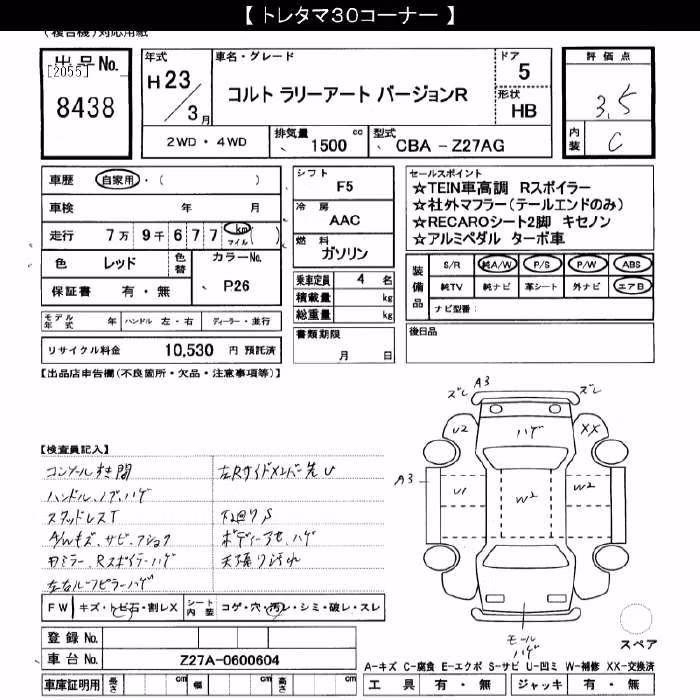 【 トレタマ30コーナー 】
(複合機)対応用紙
出品No.
[2055]
8438
年式
H23/3月
車名・グレード
コルト ラリーアート バージョンR
ドア
5
形状
HB
評価点
3.5
内装
C
2WD・4WD
排気量
1500 cc
型式
CBA - Z27AG
車歴 自家用・( )
車検 年 月
走行 7万9千677 km マイル ( )
色 レッド
色替
カラーNo.
P26
保証書 有・無
モデル年式 年 ハンドル 左・右 ディーラー・並行
リサイクル料金 10,530 円 預託済
シフト
F5
冷房
AAC
燃料
ガソリン
乗車定員 4 名
積載量 kg
総重量 kg
書類期限
月 日
セールスポイント
☆TEIN車高調 Rスポイラー
☆社外マフラー(テールエンドのみ)
☆RECAROシート2脚 キセノン
☆アルミペダル ターボ車
装備品
S/R 純A/W P/S P/W ABS
純TV 純ナビ 革シート 外ナビ エアB
ナビ型番:
後日品
【出品店申告欄(不良箇所・欠品・注意事項等)】
【検査員記入】
ハンドル、ノブハゲ
スタッドレスT
A/Wキズ、サビ、フショク
Dミラー、Rスポイラーハゲ
左右ルーフピラーハゲ
左Rサイドメンバー先U
下回りS
ボディーアセ、ハゲ
天張り汚れ
FW キズ・トビ石・割レX
シート内装 コゲ・穴・汚レ・シミ・破レ・スレ
登録No.
車台No. Z27A-0600604
車庫証明用 長さ cm 幅 cm 高さ cm
A3
ズレ
ズレ
U2
ハゲ
XX
A3
U1
W2
W2
モール
ハゲ
スペア
A-キズ C-腐食 E-エクボ S-サビ U-凹ミ W-補修 XX-交換済
工具 有・無 ジャッキ 有・無